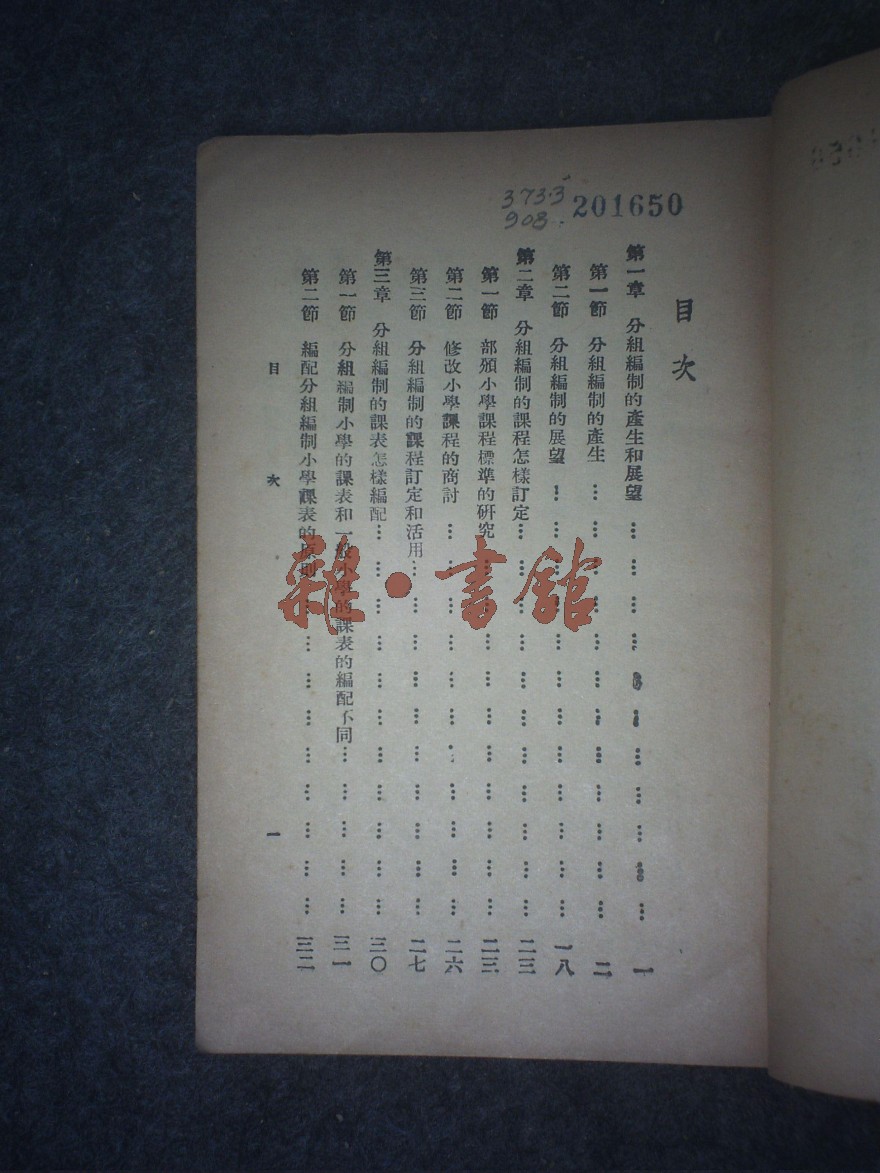 373.3
908
201650
目次
第一章 分組編制的產生和展望 … … … … … … … … … … … 一
第一節 分組編制的產生 … … … … … … … … … … … … 二
第二節 分組編制的展望 … … … … … … … … … … … … 一八
第二章 分組編制的課程怎樣訂定 … … … … … … … … … … … 二三
第一節 部頒小學課程標準的研究 … … … … … … … … … … 二三
第二節 修改小學課程的商討 … … … … … … … … … … … 二六
第三節 分組編制的課程訂定和活用 … … … … … … … … … … 二七
第三章 分組編制的課表怎樣編配 … … … … … … … … … … … 三〇
第一節 分組編制小學的課表和一般小學的課表的編配不同 … … … … … 三一
第二節 編配分組編制小學課表的原則 … … … … … … … … … 三二
目次 一
雜·書館